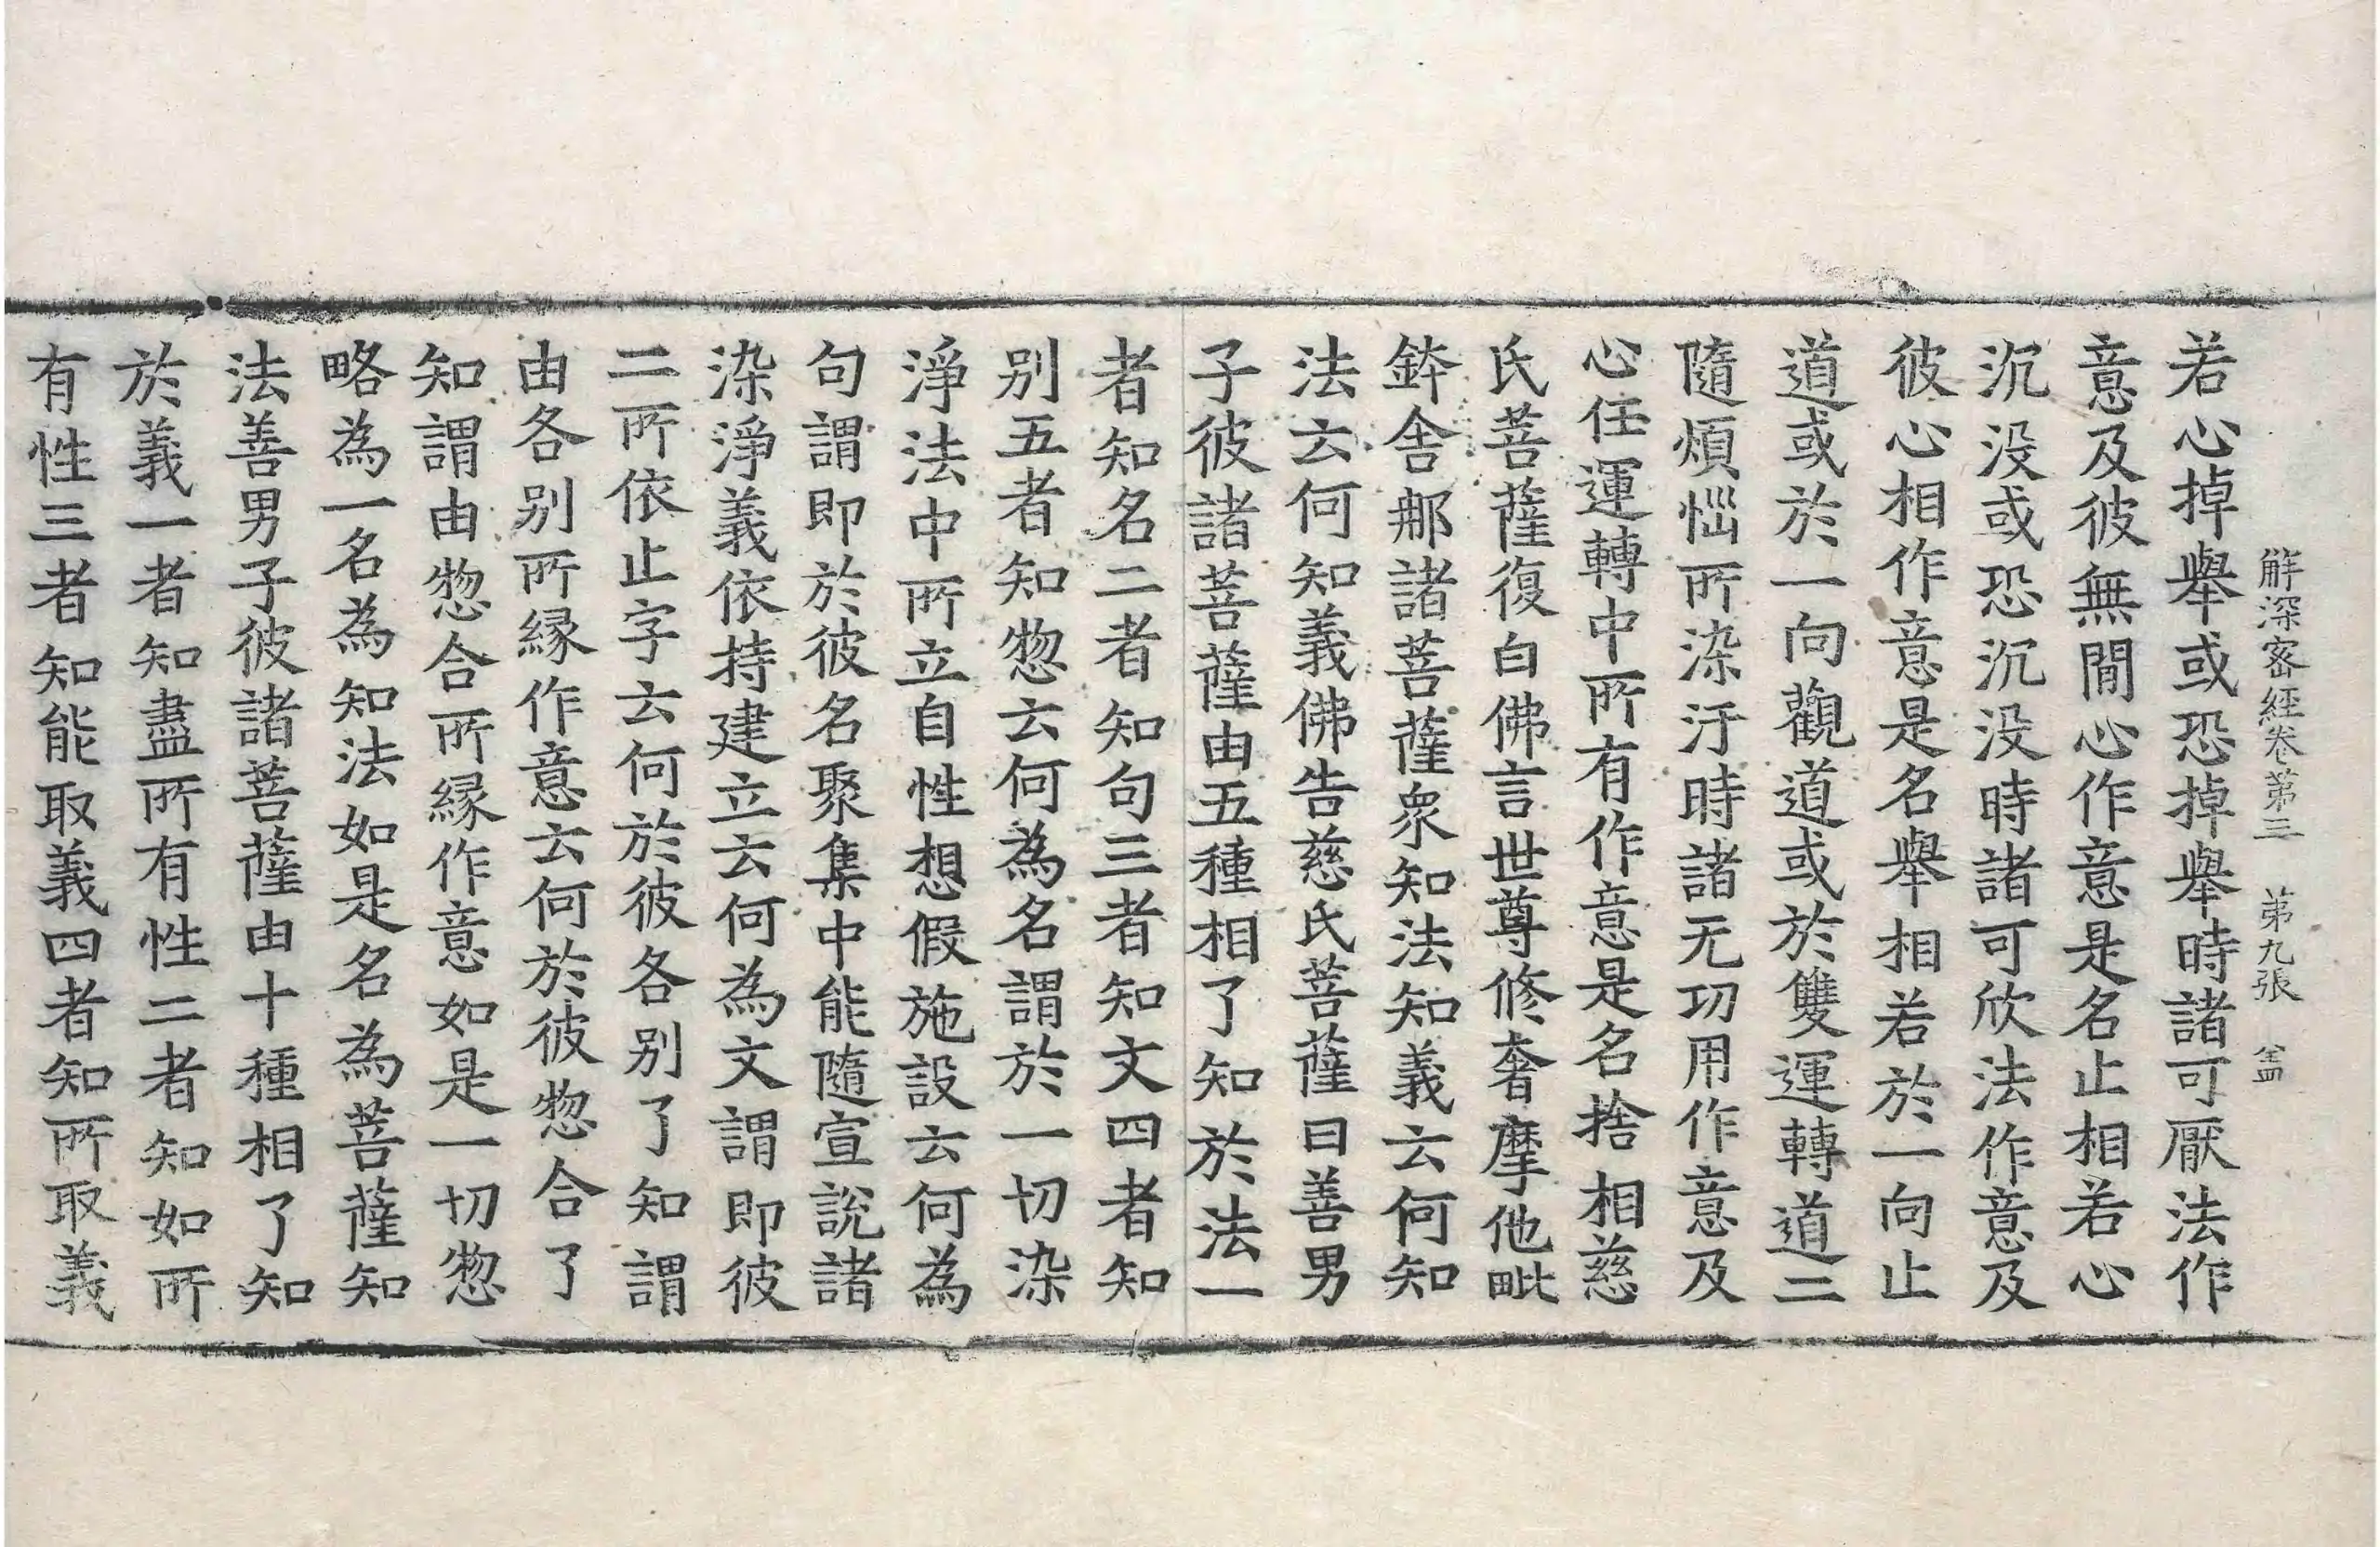 解深密經卷第三 第九張
若心掉舉或恐掉舉時諸可厭法作
意及彼無閒心作意是名止相若心
沉没或恐沉没時諸可欣法作意及
彼心相作意是名舉相若於一向止
道或於一向觀道或於雙運轉道二
隨煩惱所染汙時諸无功用作意及
心任運轉中所有作意是名捨相慈
氏菩薩復白佛言世尊修奢摩他毗
鉢舍那諸菩薩衆知法知義云何知
法云何知義佛告慈氏菩薩曰善男
子彼諸菩薩由五種相了知於法一
者知名二者知句三者知文四者知
别五者知惣云何為名謂於一切染
淨法中所立自性想假施設云何為
句謂即於彼名聚集中能隨宣說諸
染淨義依持建立云何為文謂即彼
二所依止字云何於彼各别了知謂
由各别所縁作意云何於彼惣合了
知謂由惣合所縁作意如是一切惣
略為一名為知法如是名為菩薩知
法善男子彼諸菩薩由十種相了知
於義一者知盡所有性二者知如所
有性三者知能取義四者知所取義